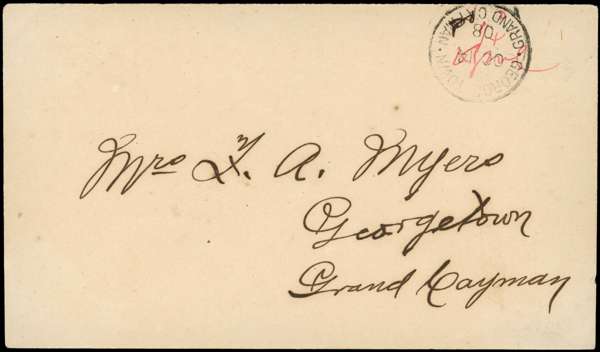 GEORGE TOWN · GRAND CAYMAN
08
Mrs F. A. Myers
Georgetown
Grand Cayman